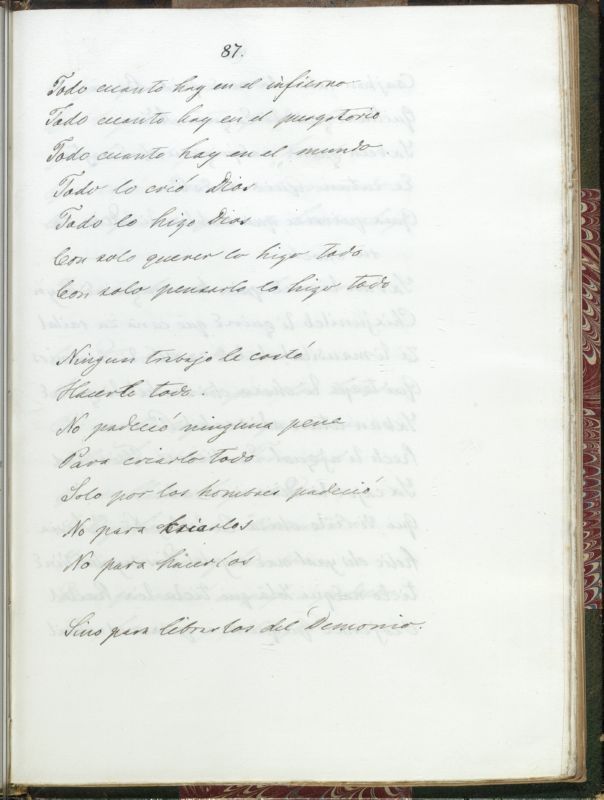 87.
Todo cuanto hay en el infierno
Todo cuanto hay en el purgatorio
Todo cuanto hay en el mundo
Todo lo crió Dios
Todo lo hizo Dios
Con solo querer lo hizo todo
Con solo pensarlo lo hizo todo
Ningun trabajo le costó
Hacerlo todo.
No padeció ninguna pena
Para criarlo todo
Solo por los hombres padeció
No para criarlos
No para hacerlos
Sino para librarlos del Demonio.